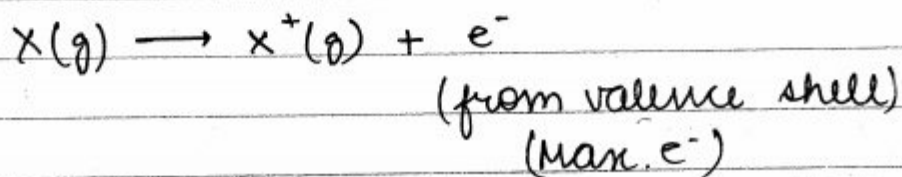 X(g) ⟶ X⁺(g) + e⁻
(from valence shell)
(Max. e⁻)